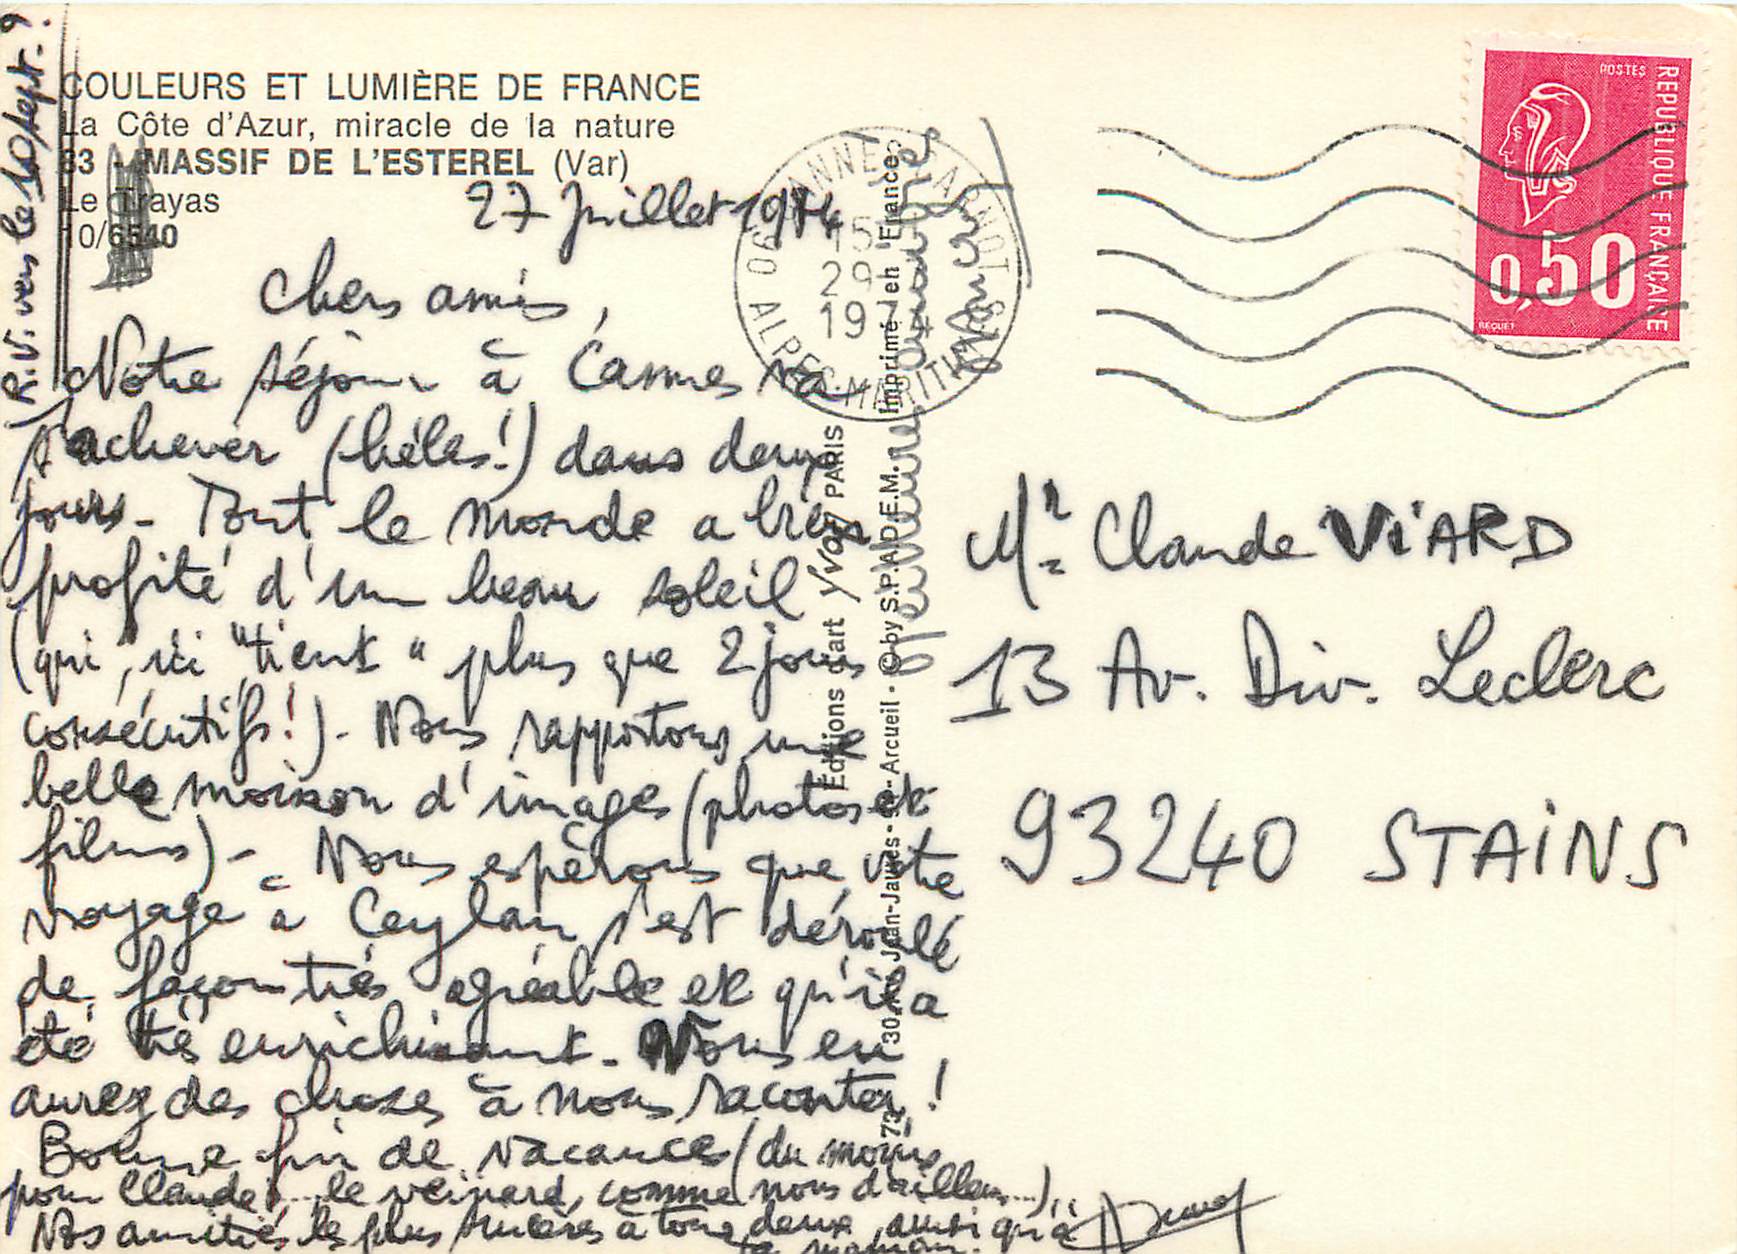 COULEURS ET LUMIÈRE DE FRANCE
La Côte d'Azur, miracle de la nature
83 - MASSIF DE L'ESTEREL (Var)
Le Trayas
10/6540
R.V. vers le 10 sept. ?
27 Juillet 1974
Chers amis,
Notre séjour à Cannes va
s'achever (hélas!) dans deux
jours - Tout le monde a bien
profité d'un beau soleil
(qui, ici "tient" plus que 2 jours
consécutifs!) - Nous rapportons une
belle moisson d'images (photos et
films) - Nous espérons que votre
voyage à Ceylan s'est déroulé
de façon très agréable et qu'il a
été très enrichissant - Vous en
aurez des choses à nous raconter !
Bonne fin de vacances (du moins
pour Claude !... le veinard, comme nous d'ailleurs...)
Nos amitiés les plus sincères à tous deux, ainsi qu'à
ta maman.
Editions d'art Yvon PARIS
30, Av. Jean-Jaurès - 94 - Arcueil - © by S.P.A.D.E.M. Imprimé en France
Meilleures amitiés
CANNES
15
29
1974
06 ALPES-MARITIMES
POSTES
REPUBLIQUE FRANÇAISE
0,50
BEQUET
Mr Claude VIARD
13 Av. Div. Leclerc
93240 STAINS